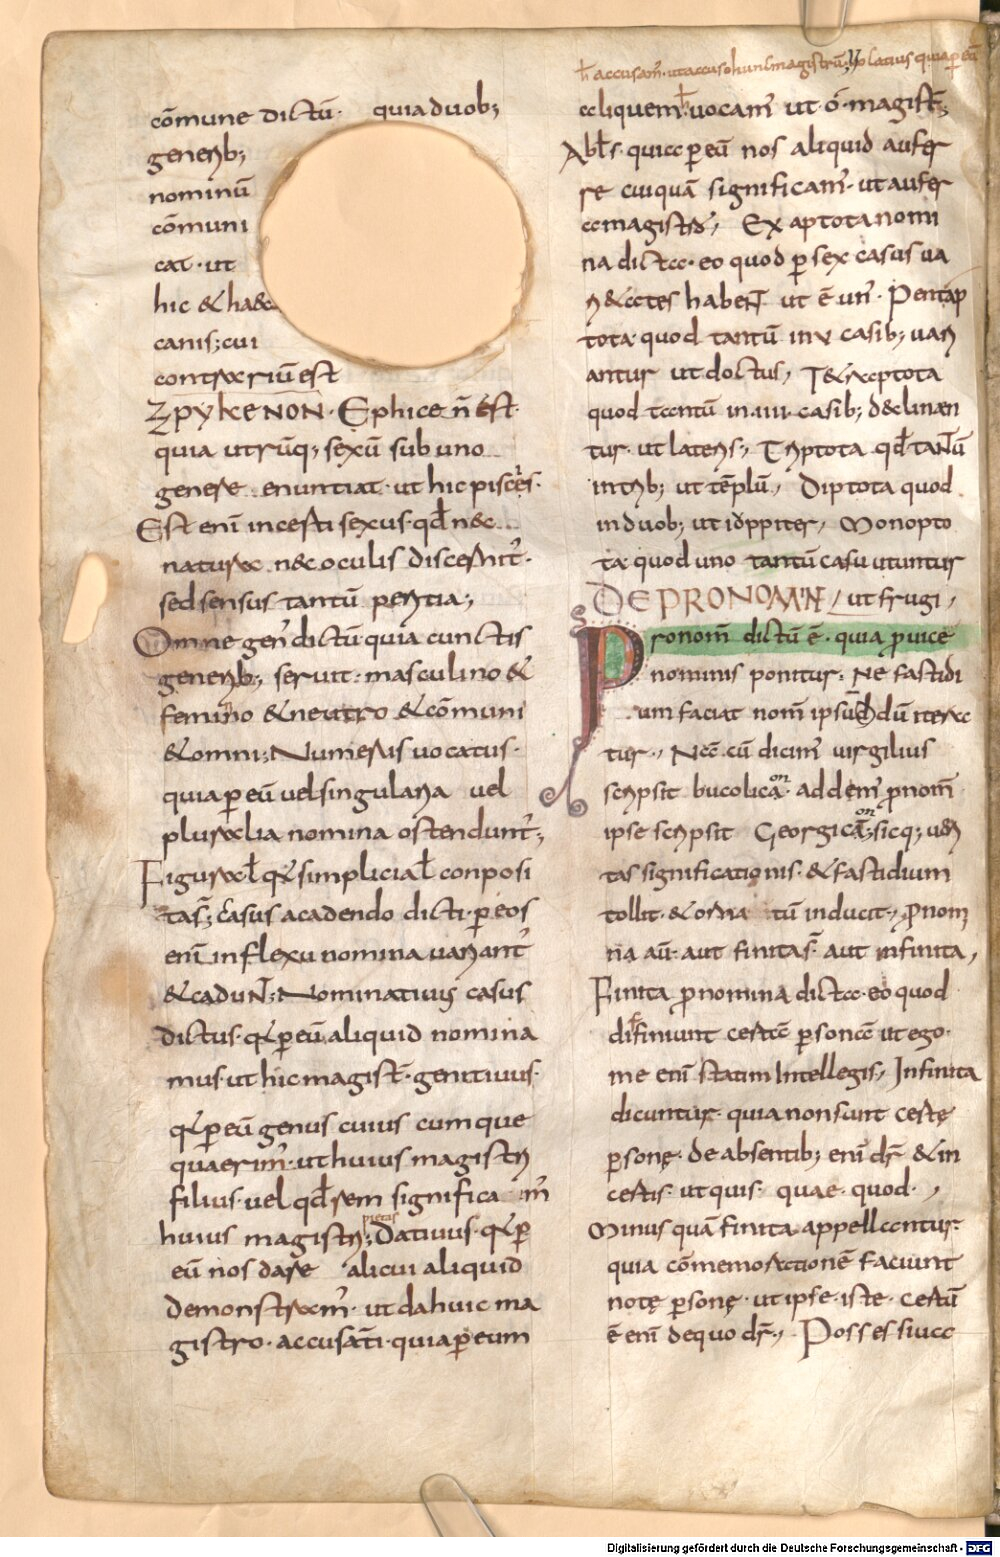 cōmune dictū· quia duob;
generib;
nominū
cōmuni
cat· ut
hic & haec
canis; cui
contrariū est
ΖΡΥΚΕΝΟΝ· Ephice n̄ est·
quia utrūq; sexū sub uno
genere enuntiat· ut hic piscis·
Est enī incerti sexus· qd̄ nec
natura nec oculis discernit᷒·
sed sensus tantū peritia;
Omne gen᷒ dictū quia cunctis
generib; seruit· masculino &
feminino & neutro & cōmuni
& omni; Numerus uocatus·
quia p eū uel singularia uel
pluralia nomina ostendunt᷒;
Figura ł q̄ simplicia ł conposi
tas̄; Casus a cadendo dicti· p eos
enī inflexu nomina uariant᷒
& cadunt; Nominatiuus casus
dictus· q̄ p eū aliquid nomina
mus· ut hic magist̄· genitiuus·
q̄ p eū genus cuius cumque
quaerim᷒· ut huius magistri
filius· uel qd̄ rem significam᷒
huius magistri; Datiuus· q̄ p
eū nos dare alicui aliquid
demonstram᷒· ut da huic ma
gistro· accusāti· quia p eum
h̄ accusam᷒· ut accuso hunc magistrū; Uocatiuus quia p eū
aliquem uocam᷒ ut ō· magist̄;
Abl̄s· quia p eū nos aliquid aufer
re cuiquā significam᷒· ut aufer
a magistro, Ex aptota nomi
na dicta· eo quod p sex casus ua
ri&ates habent ut ē un᷒· Pentap
tota· quod tantū in v casib; uari
antur ut doctus, T&raptota
quod tantū in· iiii· casib; declinan
tur· ut latens;, Triptota qd̄ tantū
in trib; ut tēplū, Diptota quod
in duob; ut iuppiter, Monopto
ta· quod uno tantū casu utuntur
DE PRONOMINE / ut frugi,
Pronom̄ dictū ē· quia p uice
nominis ponitur· Ne fastidi
um faciat nom̄ ipsūd dū itera
tur, Nā cū dicim᷒ uirgilius
scripsit bucolica· addem᷒ pnom̄
ipse scripsit Georgica; sicq; uari
tas significationis· & fastidium
tollit· & orna tū inducit, Pnom
na aū· aut finita s̄ aut infinita,
Finita pnomina dicta· eo quod
difiniunt certā psonā ut ego·
me enī statim Intellegis, Infinita
dicuntur· quia non sunt certę
psonę· de absentib; enī dr̄ & in
certis· ut quis· quae· quod· ,
Minus quā finita appellantur·
quia cōmemorationē faciunt
notę psonę· ut ipse· iste· certū
ē enī de quo dr̄, Possessiua
Digitalisierung gefördert durch die Deutsche Forschungsgemeinschaft - DFG